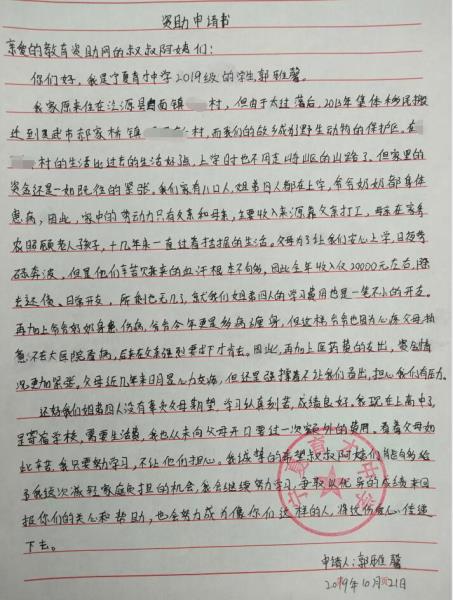 资助申请书
亲爱的教育资助网的叔叔阿姨们：
你们好，我是宁夏育才中学2019级的学生郭雅馨。
我家原来住在泾源县 面镇 村，但由于太过落后，2013年集体移民搬
迁到灵武市郝家桥镇 村，而我们的故乡成为野生动物的保护区。在
村的生活比过去的生活好强，上学时也不用走崎岖的山路了。但家里的
资金还是一如既往的紧张。我们家有八口人，姐弟四人都在上学，爷爷奶奶都身体
患病，因此，家中的劳动力只有父亲和母亲，主要收入来源靠父亲打工，母亲在家务
农照顾老人孩子，十几年来一直过着拮据的生活。父母为了让我们安心上学，日夜劳
碌奔波，但是他们辛苦欠来的血汗根本不够，因此全年收入仅20000元左右，除
去还债、日常开支，所剩也无几了，就我们姐弟四人的学习费用也是一笔不小的开支。
再加上爷爷奶奶身患伤病，爷爷今年更是多病缠身，但这样爷爷也因为心疼父母
不去大医院看病，后来在父亲强烈要求下才肯去。因此，再加上医药费的支出，资金情
况更加紧张。父母近几年来明显心力交瘁，但还是强撑着不让我们看出，担心我们有压力。
还好我们姐弟四人没有辜负父母期望，学习认真刻苦，成绩良好。我现在上高中了，
是寄宿学校，需要生活费，我也从未向父母开口要过一次额外的费用，看着父母如
此辛苦，我只要努力学习，不让他们担心。我诚挚的希望叔叔阿姨们能够给
予我这次减轻家庭负担的机会，我会继续努力学习，争取以优异的成绩来回
报你们的关心和帮助，也会努力成为像你们这样的人，将这份爱心传递
下去。
宁夏育才中学
申请人：郭雅馨
2019年10月21日